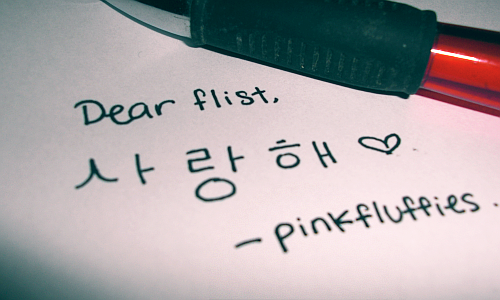 Dear flist,
사랑해 ♡
- pinkfluffies.